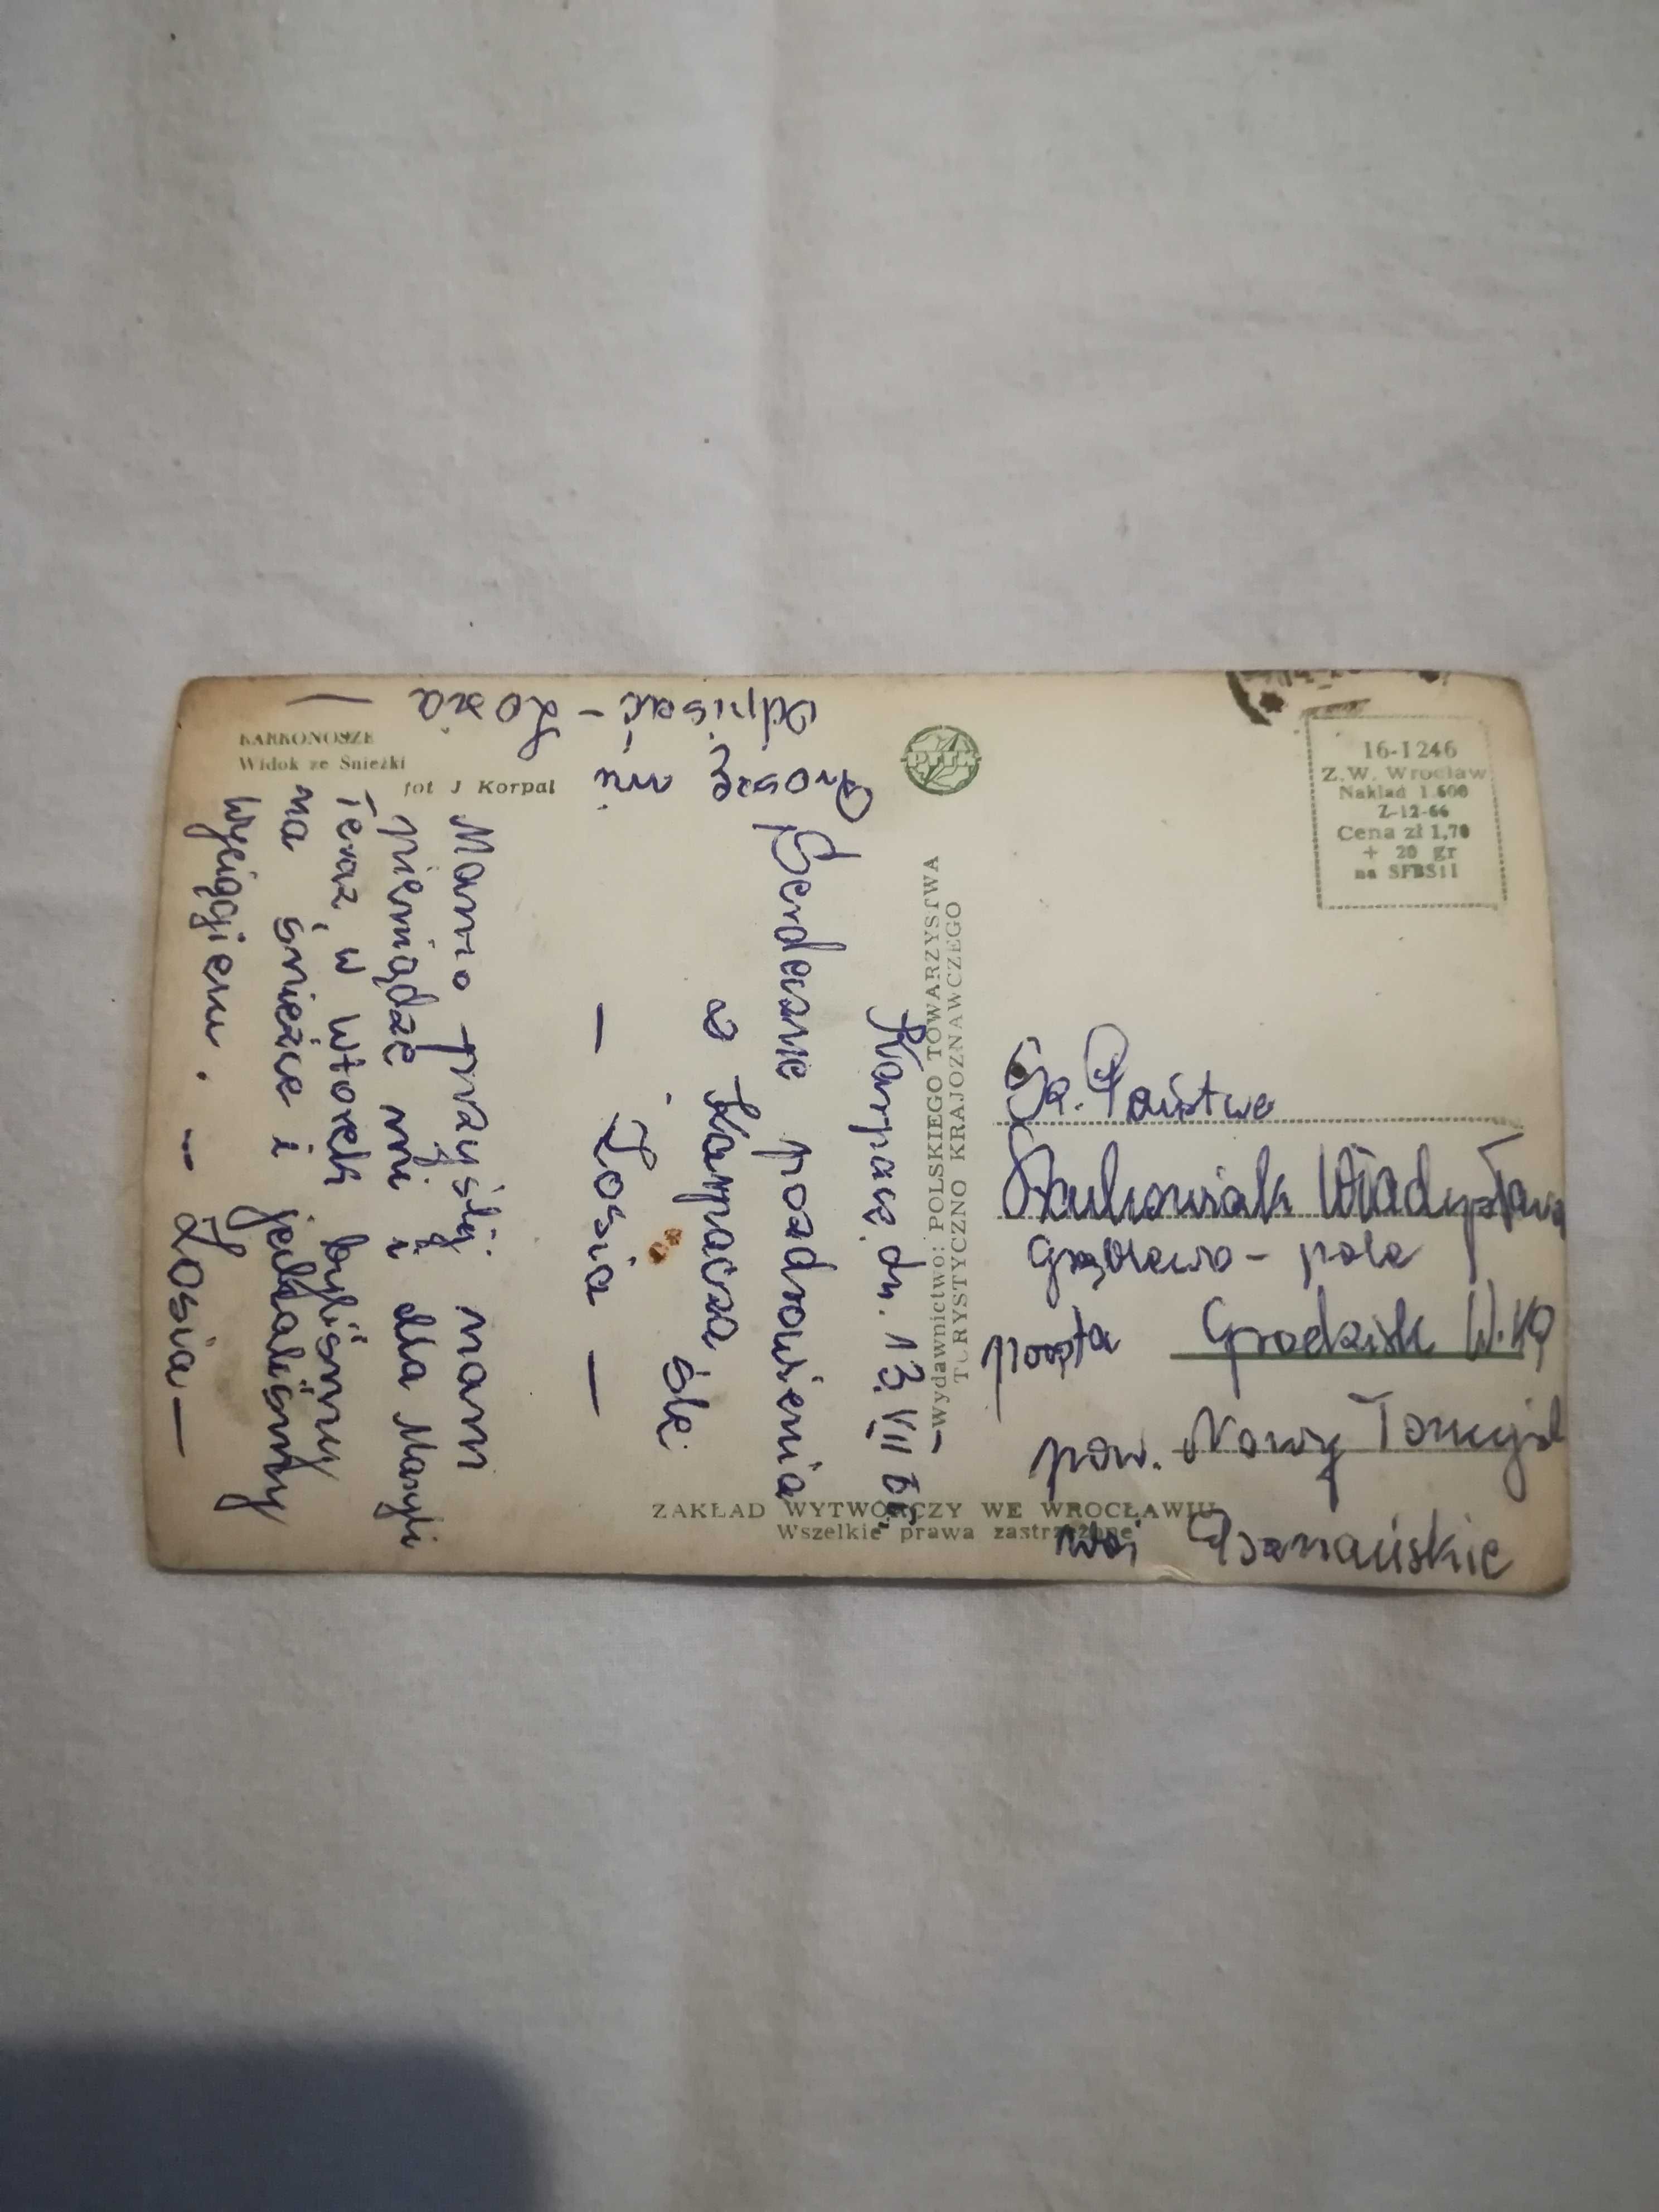 KARKONOSZE
Widok ze Śnieżki
fot J Korpal
Karpacz, dn. 13 VII
Serdeczne pozdrowienia
z Karpacza
ślę
– Zosia –
Mamo przyślij nam
pieniądze mi i dla Maryli
Teraz w wtorek byliśmy
na śnieżce i jechaliśmy
wyciągiem. – Zosia –
Proszę mi
odpisać – Zosia
PTTK
Wydawnictwo: POLSKIEGO TOWARZYSTWA
TURYSTYCZNO KRAJOZNAWCZEGO
16-1246
Z.W. Wrocław
Nakład 1.600
Z-12-66
Cena zł 1,70
+ 20 gr
na SFBSiI
Sz. Państwo
Władysława
pole
poczta Grodzisk W.
pow. Nowy Tomyśl
woj Poznańskie
ZAKŁAD WYTWÓRCZY WE WROCŁAWIU
Wszelkie prawa zastrzeżone